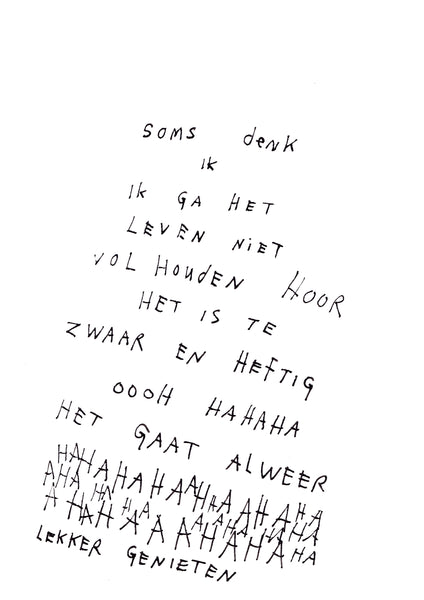 SOMS denk
IK
IK GA HET
LEVEN NIET
VOL HOUdEN HOOR
HET IS TE
ZWAAR EN HEFTIG
OOOH HAHAHA
HET GAAT ALWEER
LEKKER GENIETEN